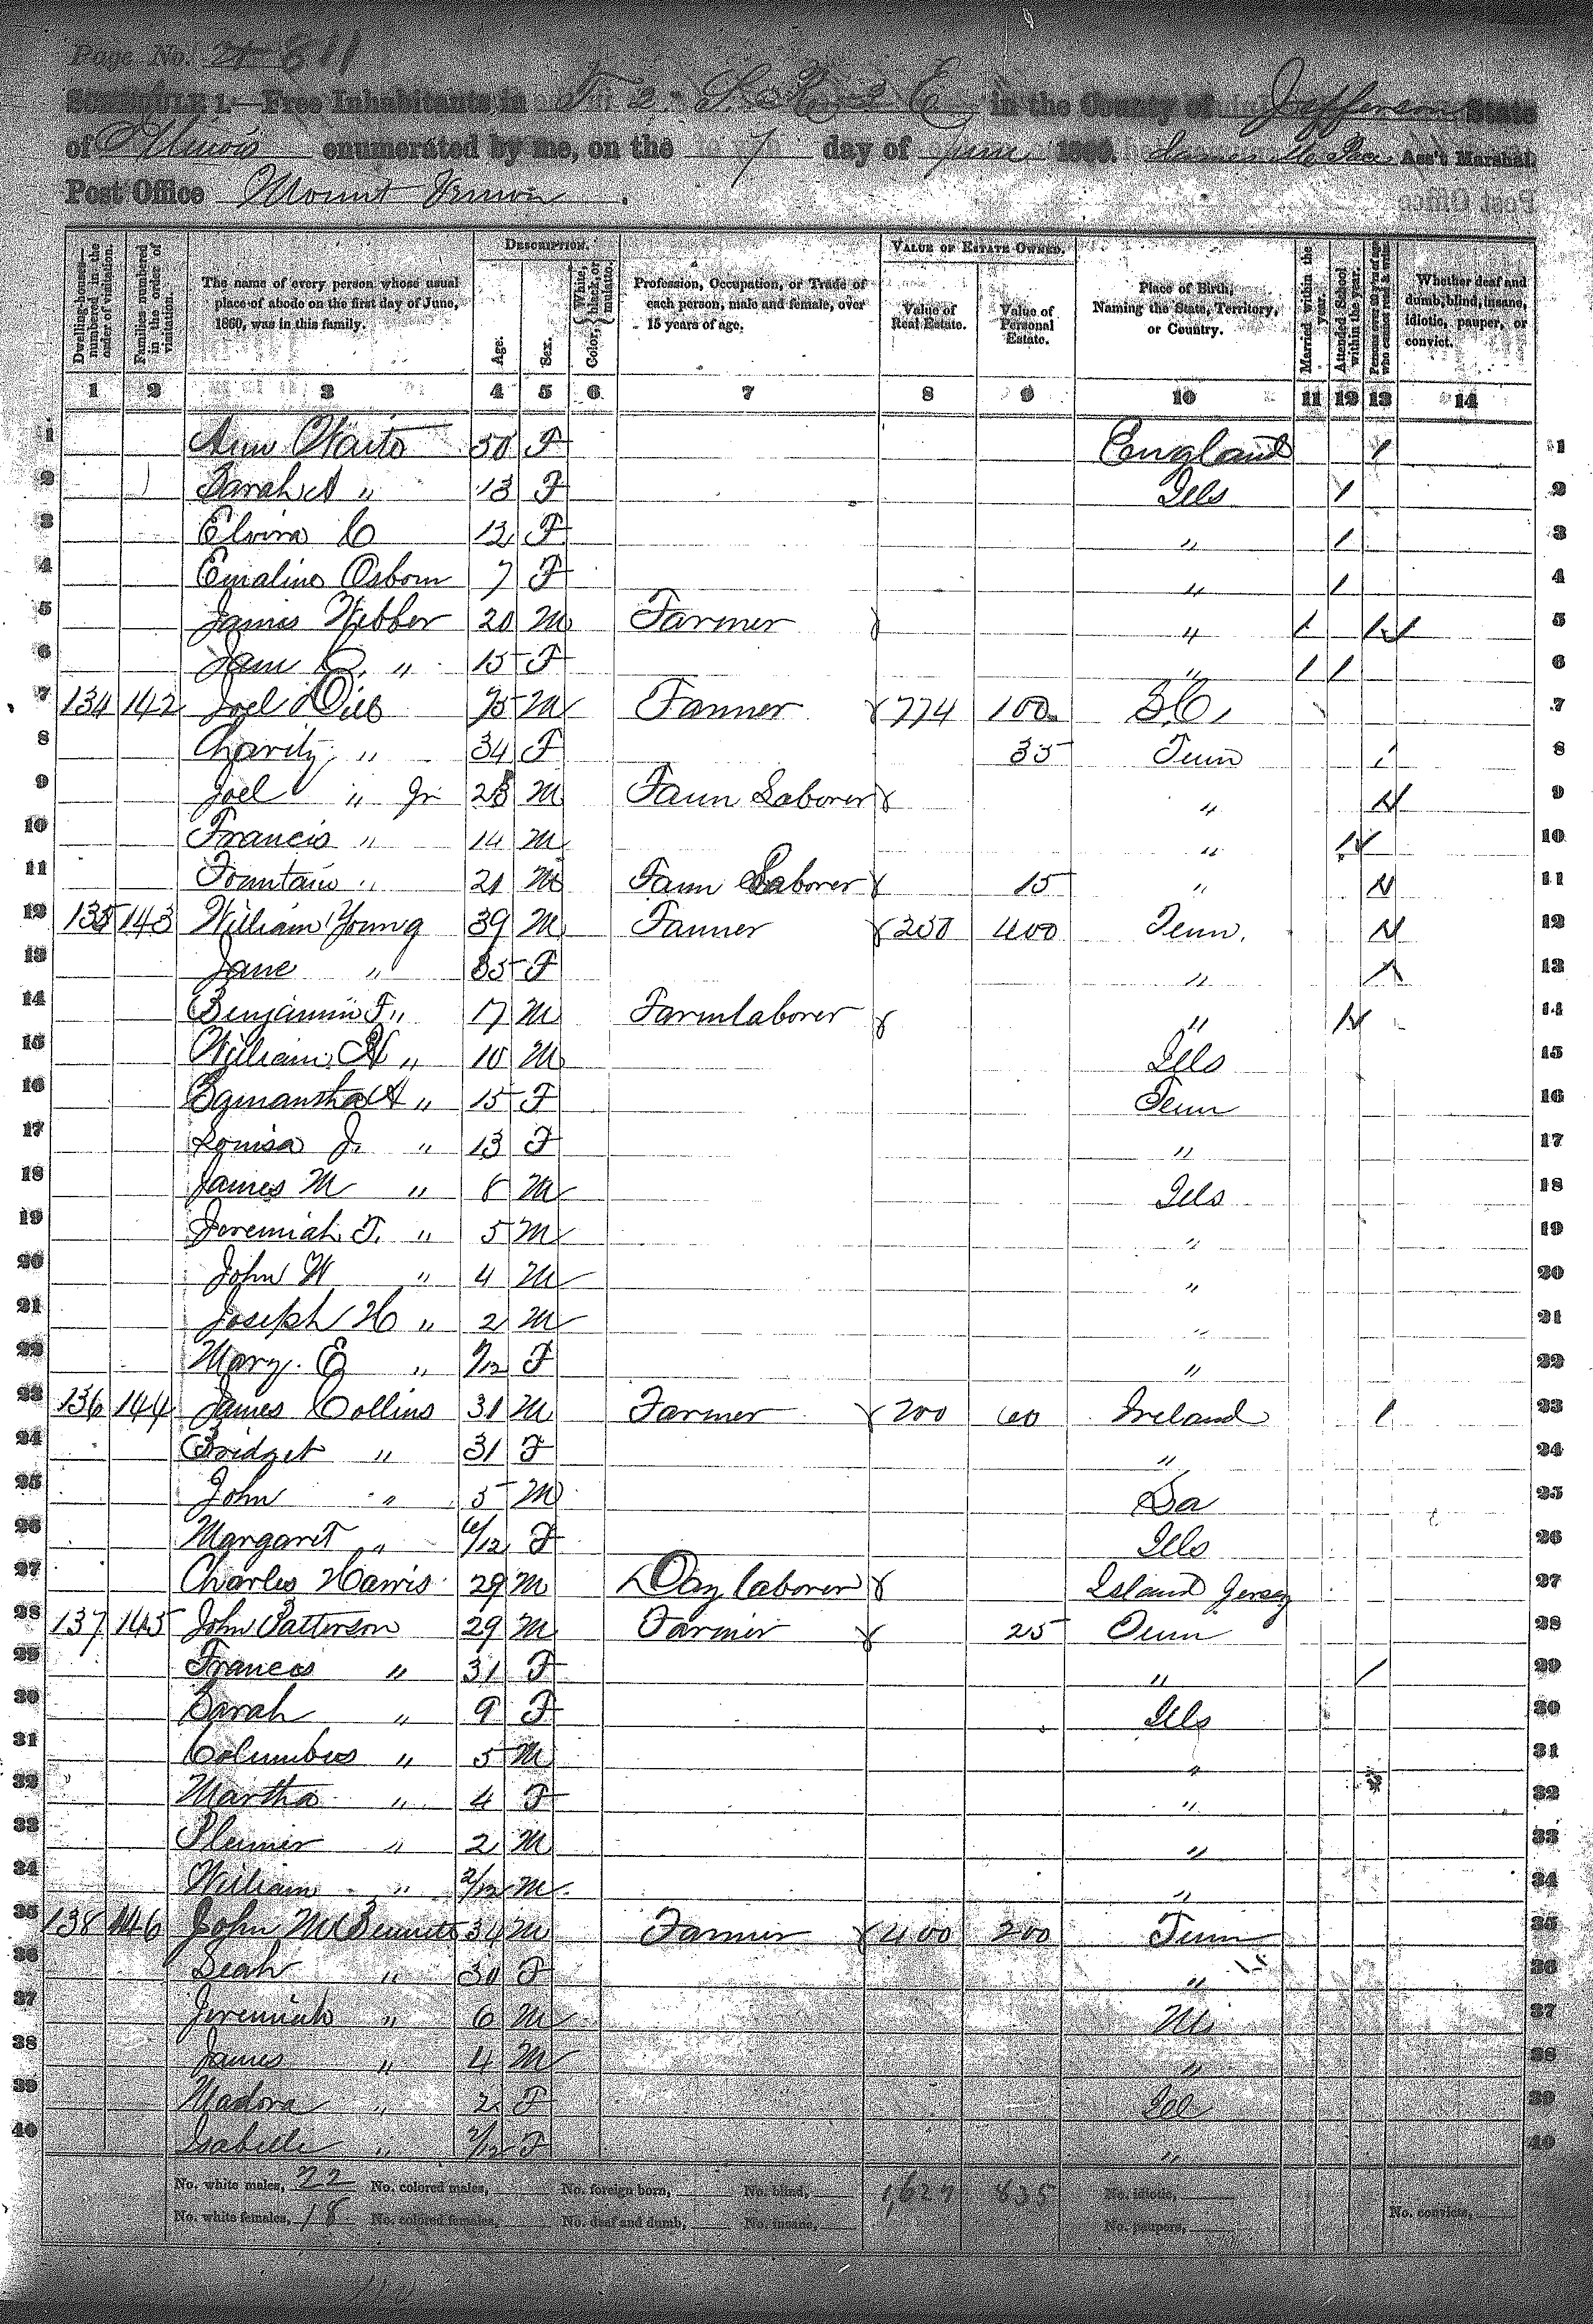 Page No. 811
SCHEDULE 1.—Free Inhabitants in T 2 S. R 2 E in the County of Jefferson State
of Illinois enumerated by me, on the 7 day of June 1860. James M Pace Ass't Marshal.
Post Office Mount Vernon.
Dwelling-houses—numbered in the order of visitation.
Families numbered in the order of visitation.
The name of every person whose usual place of abode on the first day of June, 1860, was in this family.
DESCRIPTION.
Age.
Sex.
Color, White, black, or mulatto.
Profession, Occupation, or Trade of each person, male and female, over 15 years of age.
VALUE OF ESTATE OWNED.
Value of Real Estate.
Value of Personal Estate.
Place of Birth, Naming the State, Territory, or Country.
Married within the year.
Attended School within the year.
Persons over 20 y'rs of age who cannot read & write.
Whether deaf and dumb, blind, insane, idiotic, pauper, or convict.
1 2 3 4 5 6 7 8 9 10 11 12 13 14
1 Ann 50 F England / 1
2 Sarah A " 13 F Ills / 2
3 Elvira C 12 F " / 3
4 Emaline Osborn 7 F " / 4
5 James Webber 20 M Farmer " / / 5
6 Jane C. " 15 F " / / 6
7 134 142 Joel 75 M Farmer 774 100 S.C. 7
8 Charity " 34 F 35 Tenn / 8
9 Joel " Jr 23 M Farm Laborer " / 9
10 Francis " 14 M " / 10
11 Fountain " 21 M Farm Laborer 15 " / 11
12 135 143 William Young 39 M Farmer 250 400 Tenn. / 12
13 Jane " 35 F " / 13
14 Benjamin F " 17 M Farm laborer " / 14
15 William H " 10 M Ills 15
16 Samantha A " 15 F Tenn 16
17 Louisa J. " 13 F " 17
18 James M " 8 M Ills 18
19 Jeremiah T. " 5 M " 19
20 John W " 4 M " 20
21 Joseph H " 2 M " 21
22 Mary. E " /12 F " 22
23 136 144 James Collins 31 M Farmer 200 60 Ireland / 23
24 Bridget " 31 F " 24
25 John " 5 M 25
26 Margaret " 6/12 F Ills 26
27 Charles Harris 29 M Day laborer Island Jersey 27
28 137 145 John Patterson 29 M Farmer 25 Tenn 28
29 Frances " 31 F " / 29
30 Sarah " 9 F Ills 30
31 Columbus " 5 M " 31
32 Martha " 4 F " 32
33 " 2 M " 33
34 William " 2/12 M " 34
35 138 146 John M Bennett 34 M Farmer 400 200 Tenn 35
36 Leah " 30 F " 36
37 Jeremiah " 6 M 37
38 James " 4 M " 38
39 Madora " 2 F Ill 39
40 Isabelle " /12 F " 40
No. white males, 22 No. colored males, No. foreign born, No. blind, 1,624 835 No. idiotic,
No. white females, 18 No. colored females, No. deaf and dumb, No. insane, No. paupers, No. convicts,